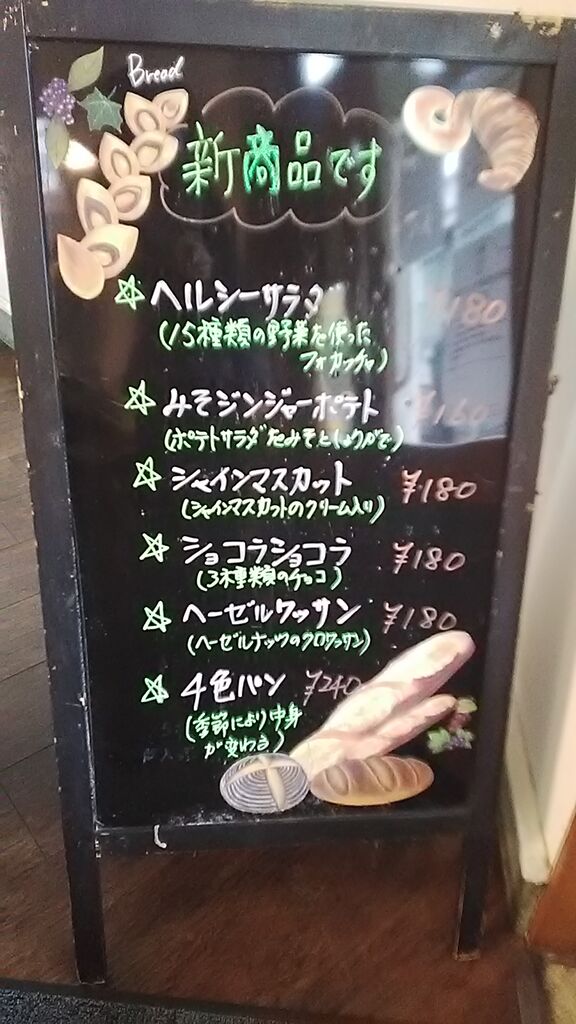 Bread
新商品です
☆ ヘルシーサラダ ¥180
(15種類の野菜を使った
フォカッチャ)
☆ みそジンジャーポテト ¥160
(ポテトサラダをみそとしょうがで)
☆ シャインマスカット ¥180
(シャインマスカットのクリーム入り)
☆ ショコラショコラ ¥180
(3種類のチョコ)
☆ ヘーゼルワッサン ¥180
(ヘーゼルナッツのクロワッサン)
☆ 4色パン ¥240
(季節により中身
が変わる)